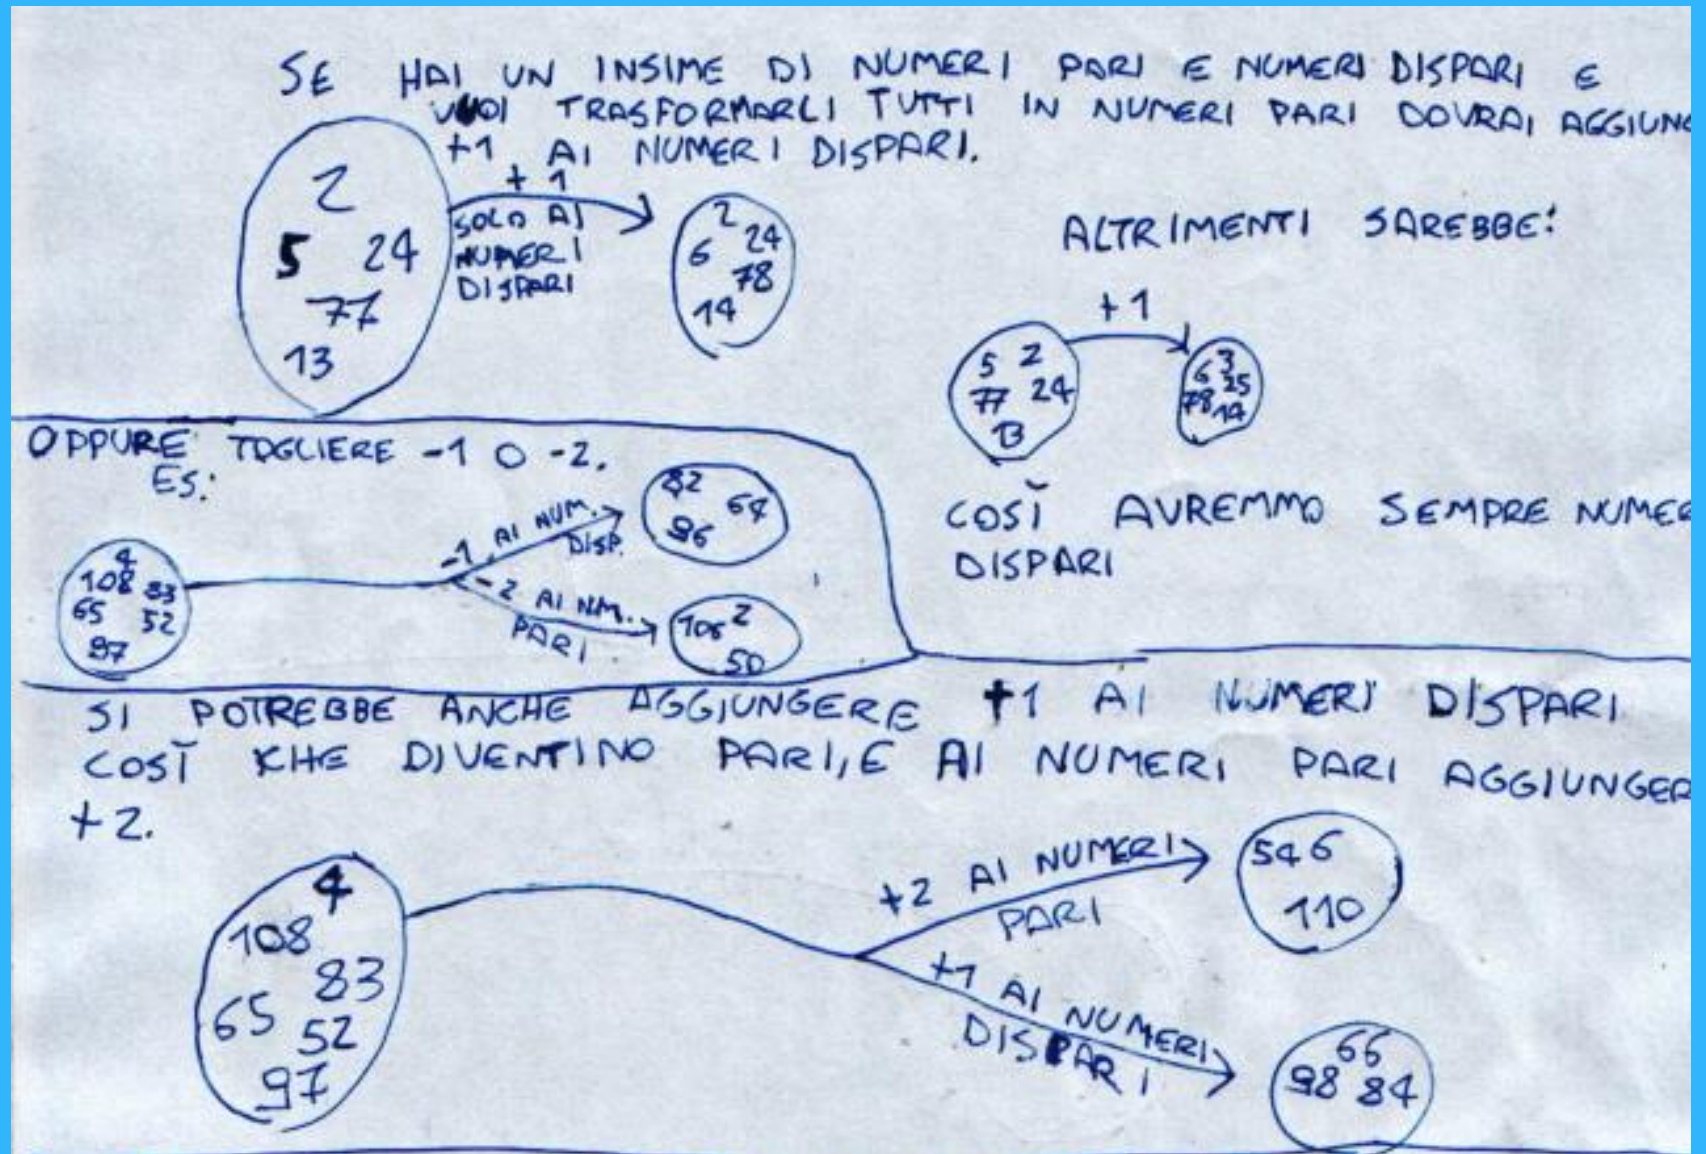 SE HAI UN INSIME DI NUMERI PARI E NUMERI DISPARI E
VUOI TRASFORMARLI TUTTI IN NUMERI PARI DOVRAI AGGIUNG
+1 AI NUMERI DISPARI.
2
5 24
77
13
+1
SOLO AI
NUMERI
DISPARI
2
6 24
78
14
ALTRIMENTI SAREBBE:
5 2
77 24
13
+1
6 3
25
78 14
COSÌ AVREMMO SEMPRE NUMER
DISPARI
OPPURE TOGLIERE -1 O -2.
ES:
4
108 83
65 52
97
-1 AI NUM.
DISP.
82 64
96
-2 AI NM.
PARI
106 2
50
SI POTREBBE ANCHE AGGIUNGERE +1 AI NUMERI DISPARI
COSÌ KHE DIVENTINO PARI, E AI NUMERI PARI AGGIUNGER
+2.
4
108
83
65 52
97
+2 AI NUMERI
PARI
54 6
110
+1 AI NUMERI
DISPARI
66
98 84